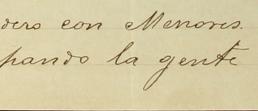 dero con Menores.
pando la gente